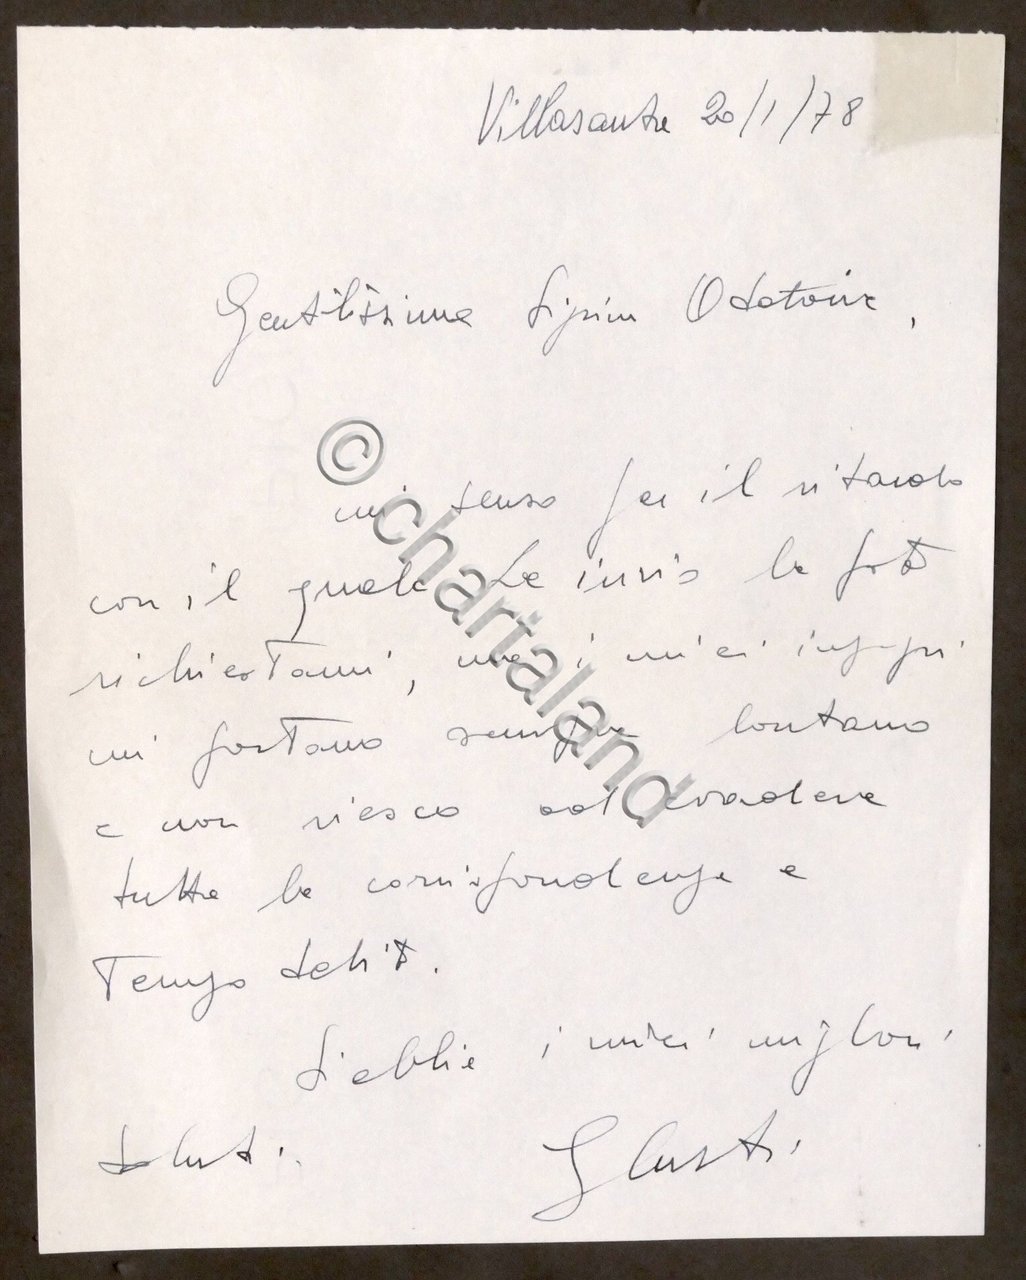 Villasanta 20/1/78
Gentilissima Sig.na
mi scuso per il ritardo
con il quale Le invio le foto
richiestami, ma i miei impegni
mi portano sempre lontano
e non riesco ad evadere
tutta la corrispondenza a
Tempo debito.
Si abbia i miei migliori
Saluti.
© chartaland